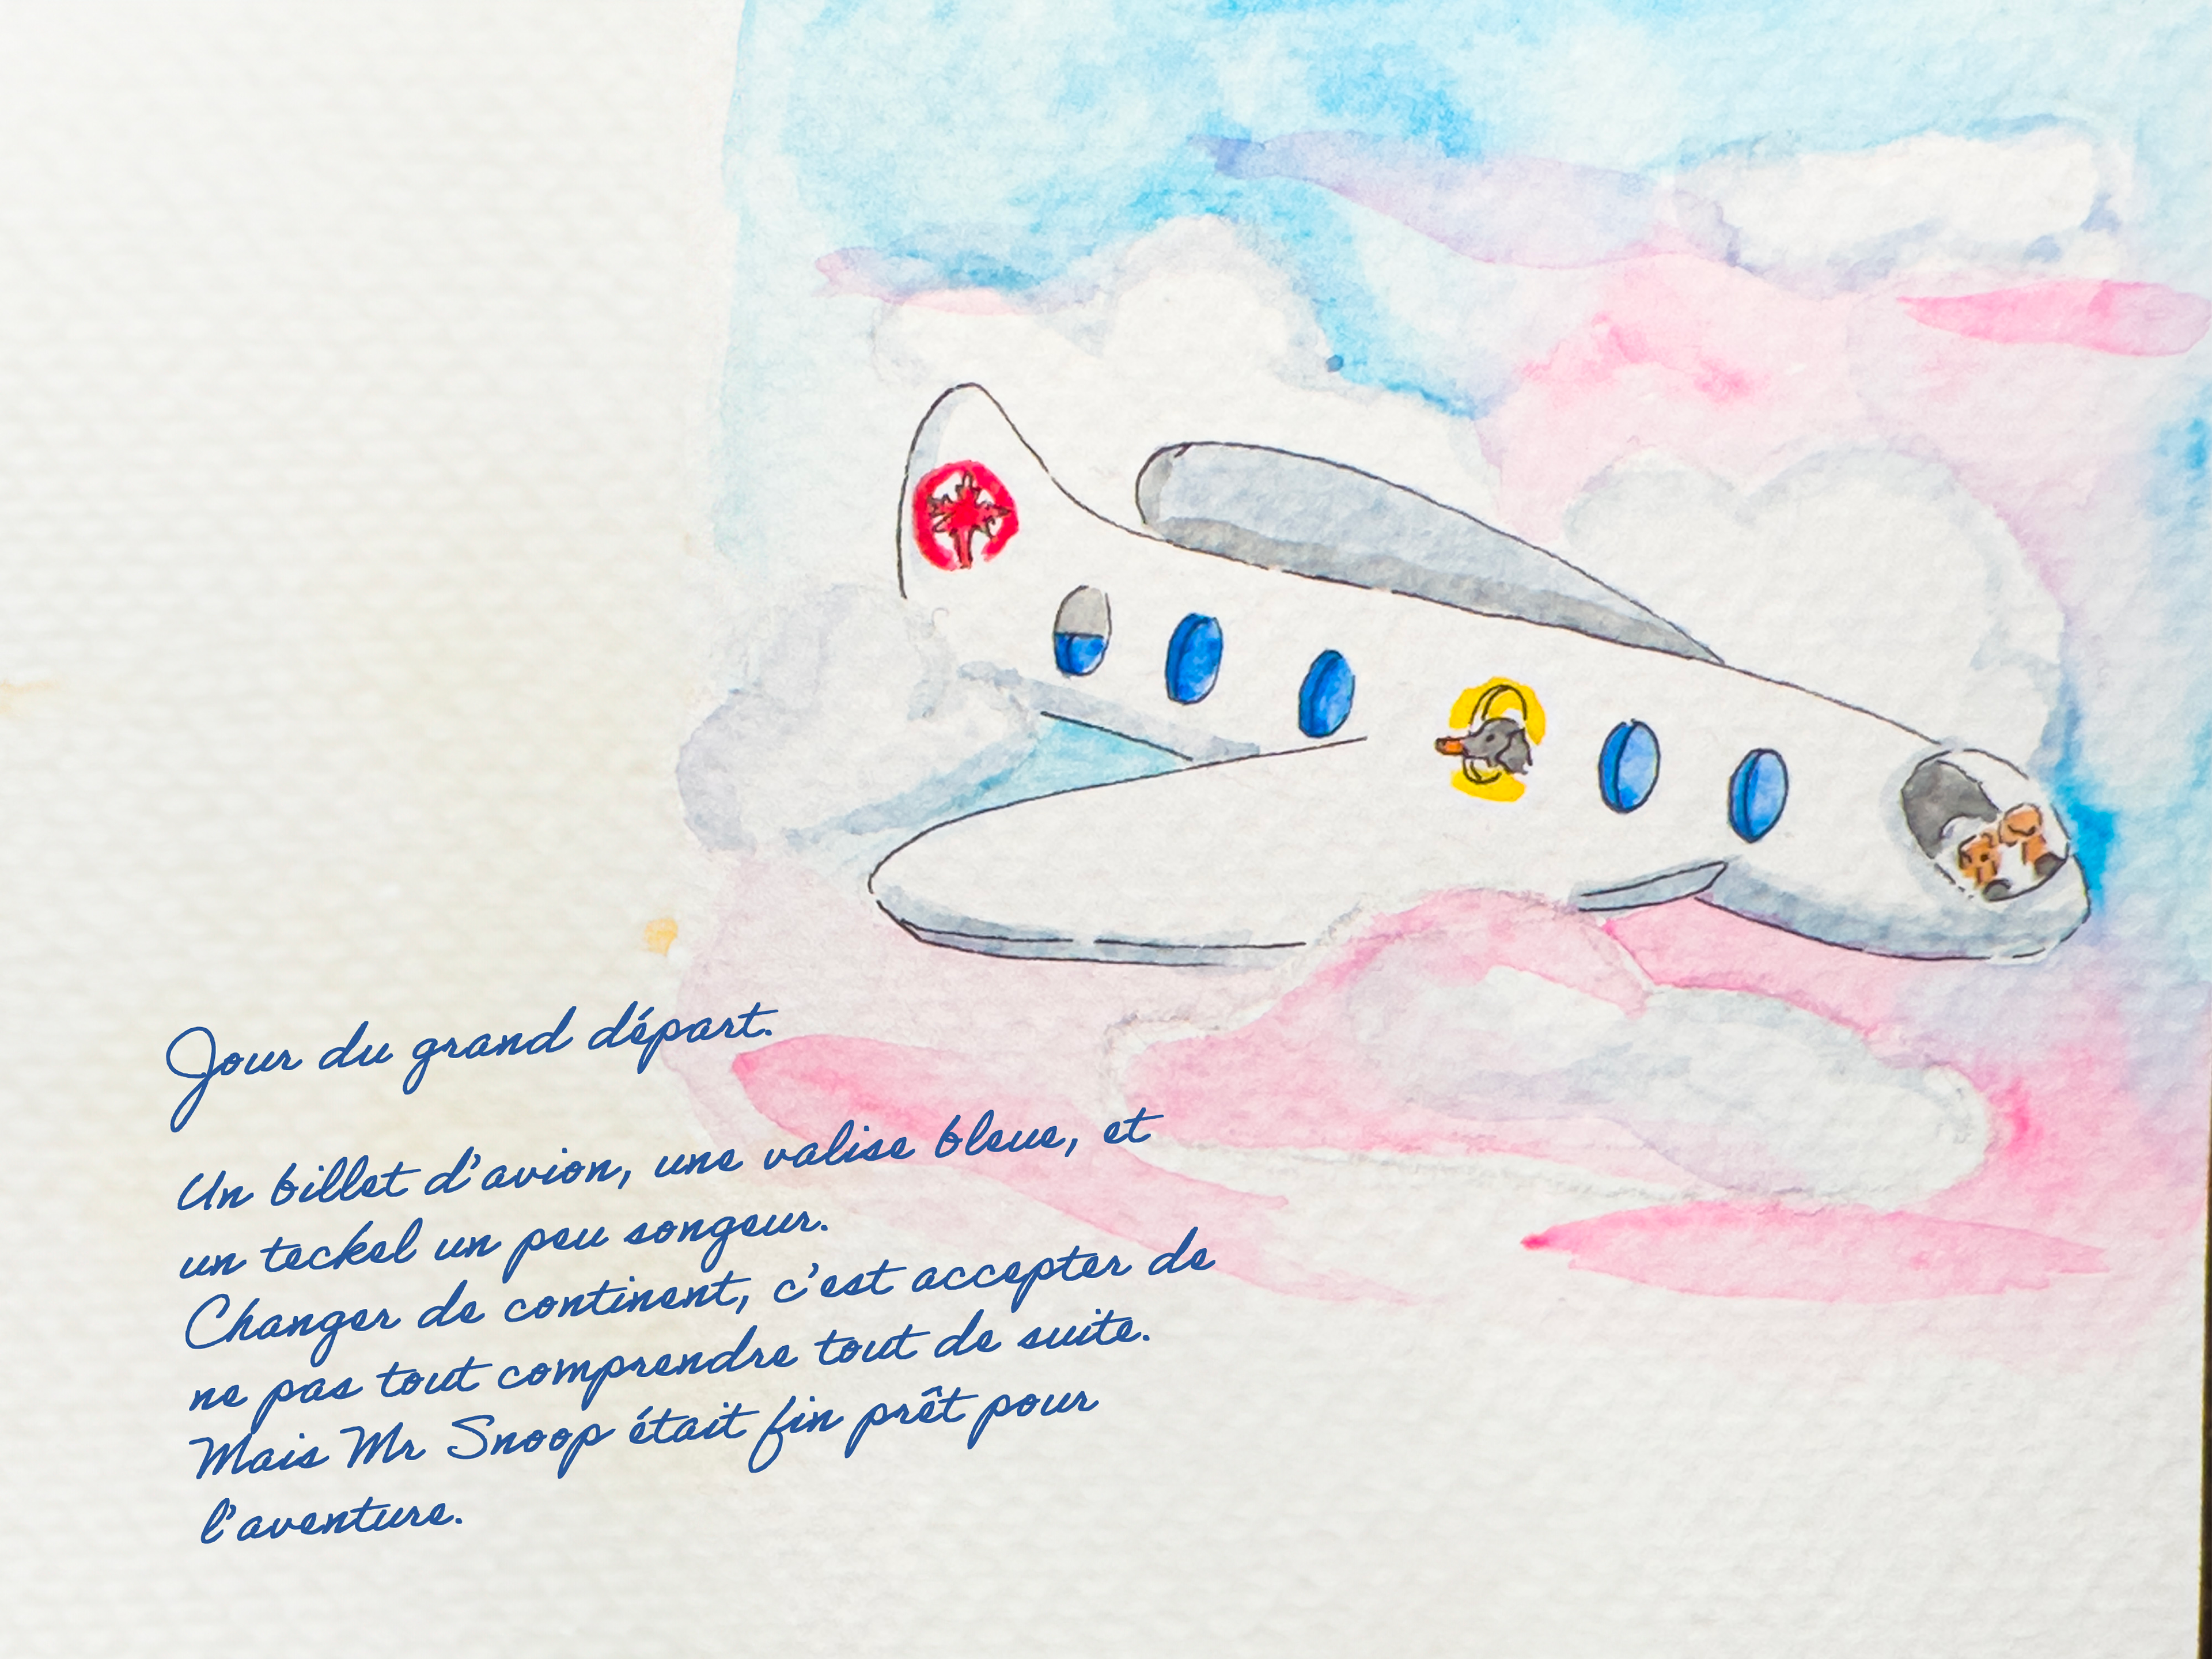 Jour du grand départ.
Un billet d'avion, une valise bleue, et
un teckel un peu songeur.
Changer de continent, c'est accepter de
ne pas tout comprendre tout de suite.
Mais Mr Snoop était fin prêt pour
l'aventure.